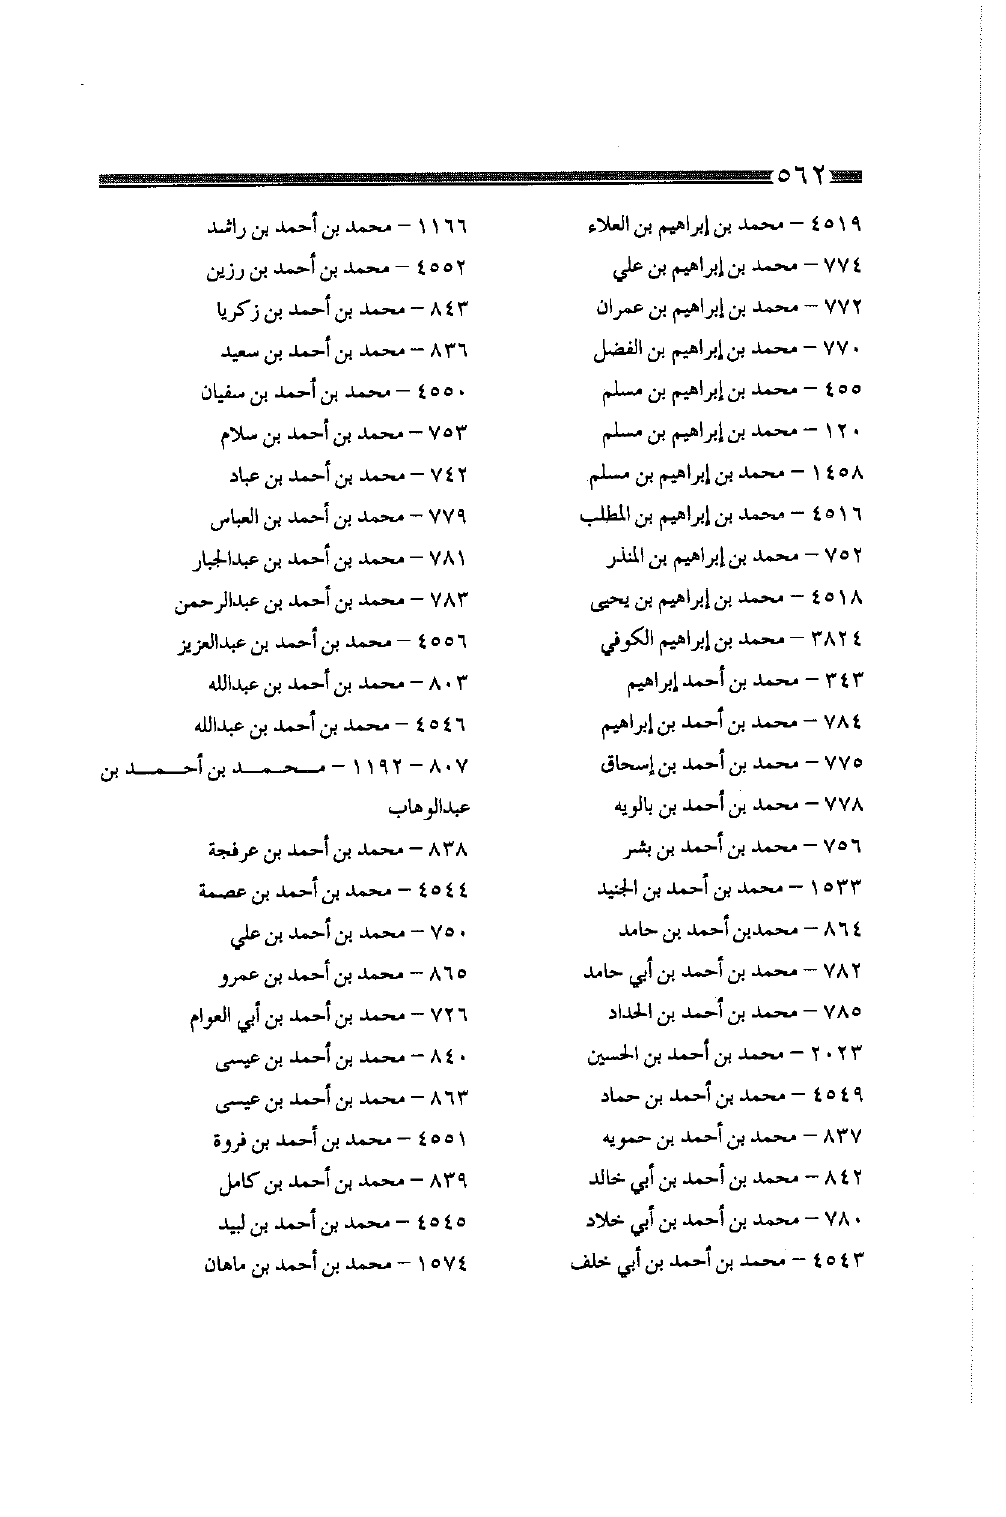 ٥٦٢
٤٥١٩ – محمد بن إبراهيم بن العلاء
٧٧٤ – محمد بن إبراهيم بن علي
٧٧٢ – محمد بن إبراهيم بن عمران
٧٧٠ – محمد بن إبراهيم بن الفضل
٤٥٥ – محمد بن إبراهيم بن مسلم
١٢٠ – محمد بن إبراهيم بن مسلم
١٤٥٨ – محمد بن إبراهيم بن مسلم
٤٥١٦ – محمد بن إبراهيم بن المطلب
٧٥٢ – محمد بن إبراهيم بن المنذر
٤٥١٨ – محمد بن إبراهيم بن يحيى
٣٨٢٤ – محمد بن إبراهيم الكوفي
٣٤٣ – محمد بن أحمد إبراهيم
٧٨٤ – محمد بن أحمد بن إبراهيم
٧٧٥ – محمد بن أحمد بن إسحاق
٧٧٨ – محمد بن أحمد بن بالويه
٧٥٦ – محمد بن أحمد بن بشر
١٥٣٣ – محمد بن أحمد بن الجنيد
٨٦٤ – محمدبن أحمد بن حامد
٧٨٢ – محمد بن أحمد بن أبي حامد
٧٨٥ – محمد بن أحمد بن الحداد
٢٠٢٣ – محمد بن أحمد بن الحسين
٤٥٤٩ – محمد بن أحمد بن حماد
٨٣٧ – محمد بن أحمد بن حمويه
٨٤٢ – محمد بن أحمد بن أبي خالد
٧٨٠ – محمد بن أحمد بن أبي خلاد
٤٥٤٣ – محمد بن أحمد بن أبي خلف
١١٦٦ – محمد بن أحمد بن راشد
٤٥٥٢ – محمد بن أحمد بن رزين
٨٤٣ – محمد بن أحمد بن زكريا
٨٣٦ – محمد بن أحمد بن سعيد
٤٥٥٠ – محمد بن أحمد بن سفيان
٧٥٣ – محمد بن أحمد بن سلام
٧٤٢ – محمد بن أحمد بن عباد
٧٧٩ – محمد بن أحمد بن العباس
٧٨١ – محمد بن أحمد بن عبدالجبار
٧٨٣ – محمد بن أحمد بن عبدالرحمن
٤٥٥٦ – محمد بن أحمد بن عبدالعزيز
٨٠٣ – محمد بن أحمد بن عبدالله
٤٥٤٦ – محمد بن أحمد بن عبدالله
٨٠٧ – ١١٩٢ – محمد بن أحمد بن
عبدالوهاب
٨٣٨ – محمد بن أحمد بن عرفجة
٤٥٤٤ – محمد بن أحمد بن عصمة
٧٥٠ – محمد بن أحمد بن علي
٨٦٥ – محمد بن أحمد بن عمرو
٧٢٦ – محمد بن أحمد بن أبي العوام
٨٤٠ – محمد بن أحمد بن عيسى
٨٦٣ – محمد بن أحمد بن عيسى
٤٥٥١ – محمد بن أحمد بن فروة
٨٣٩ – محمد بن أحمد بن كامل
٤٥٤٥ – محمد بن أحمد بن لبيد
١٥٧٤ – محمد بن أحمد بن ماهان